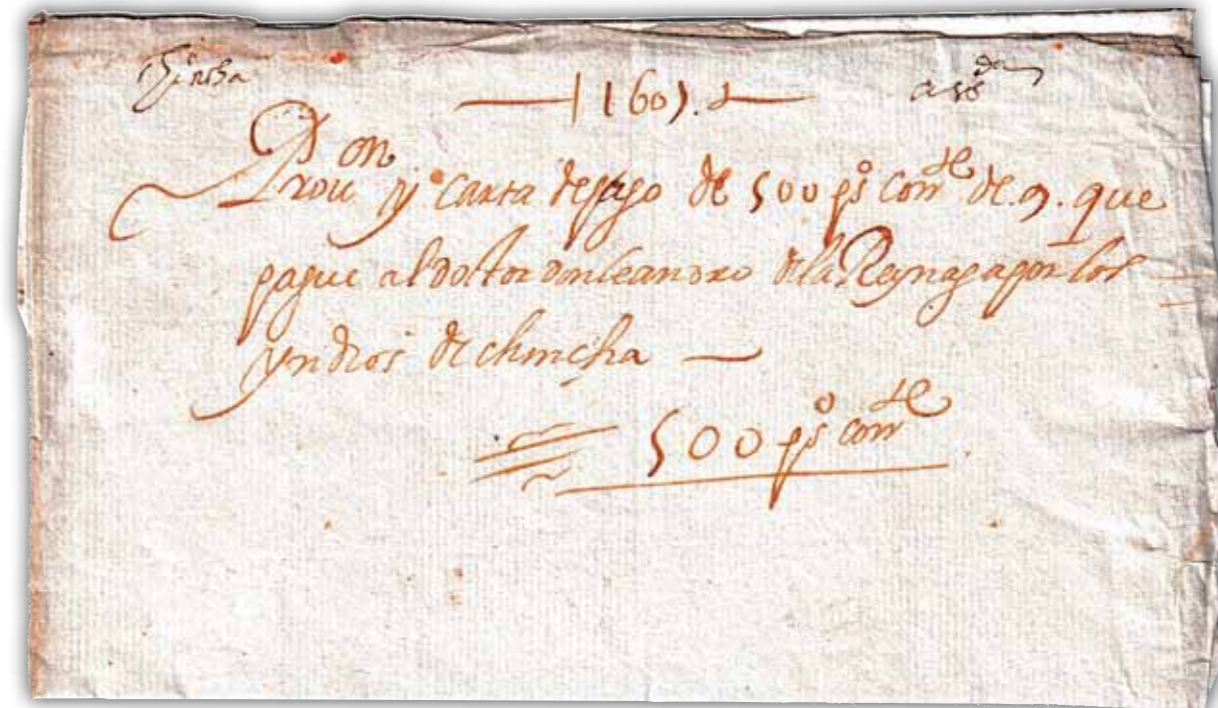 chincha
1607
Prouon y carta de pago de 500 ps corrte de 9. que
pague al doctor don leandro de la Reynaga por los
yndios de chincha
500 ps corrte